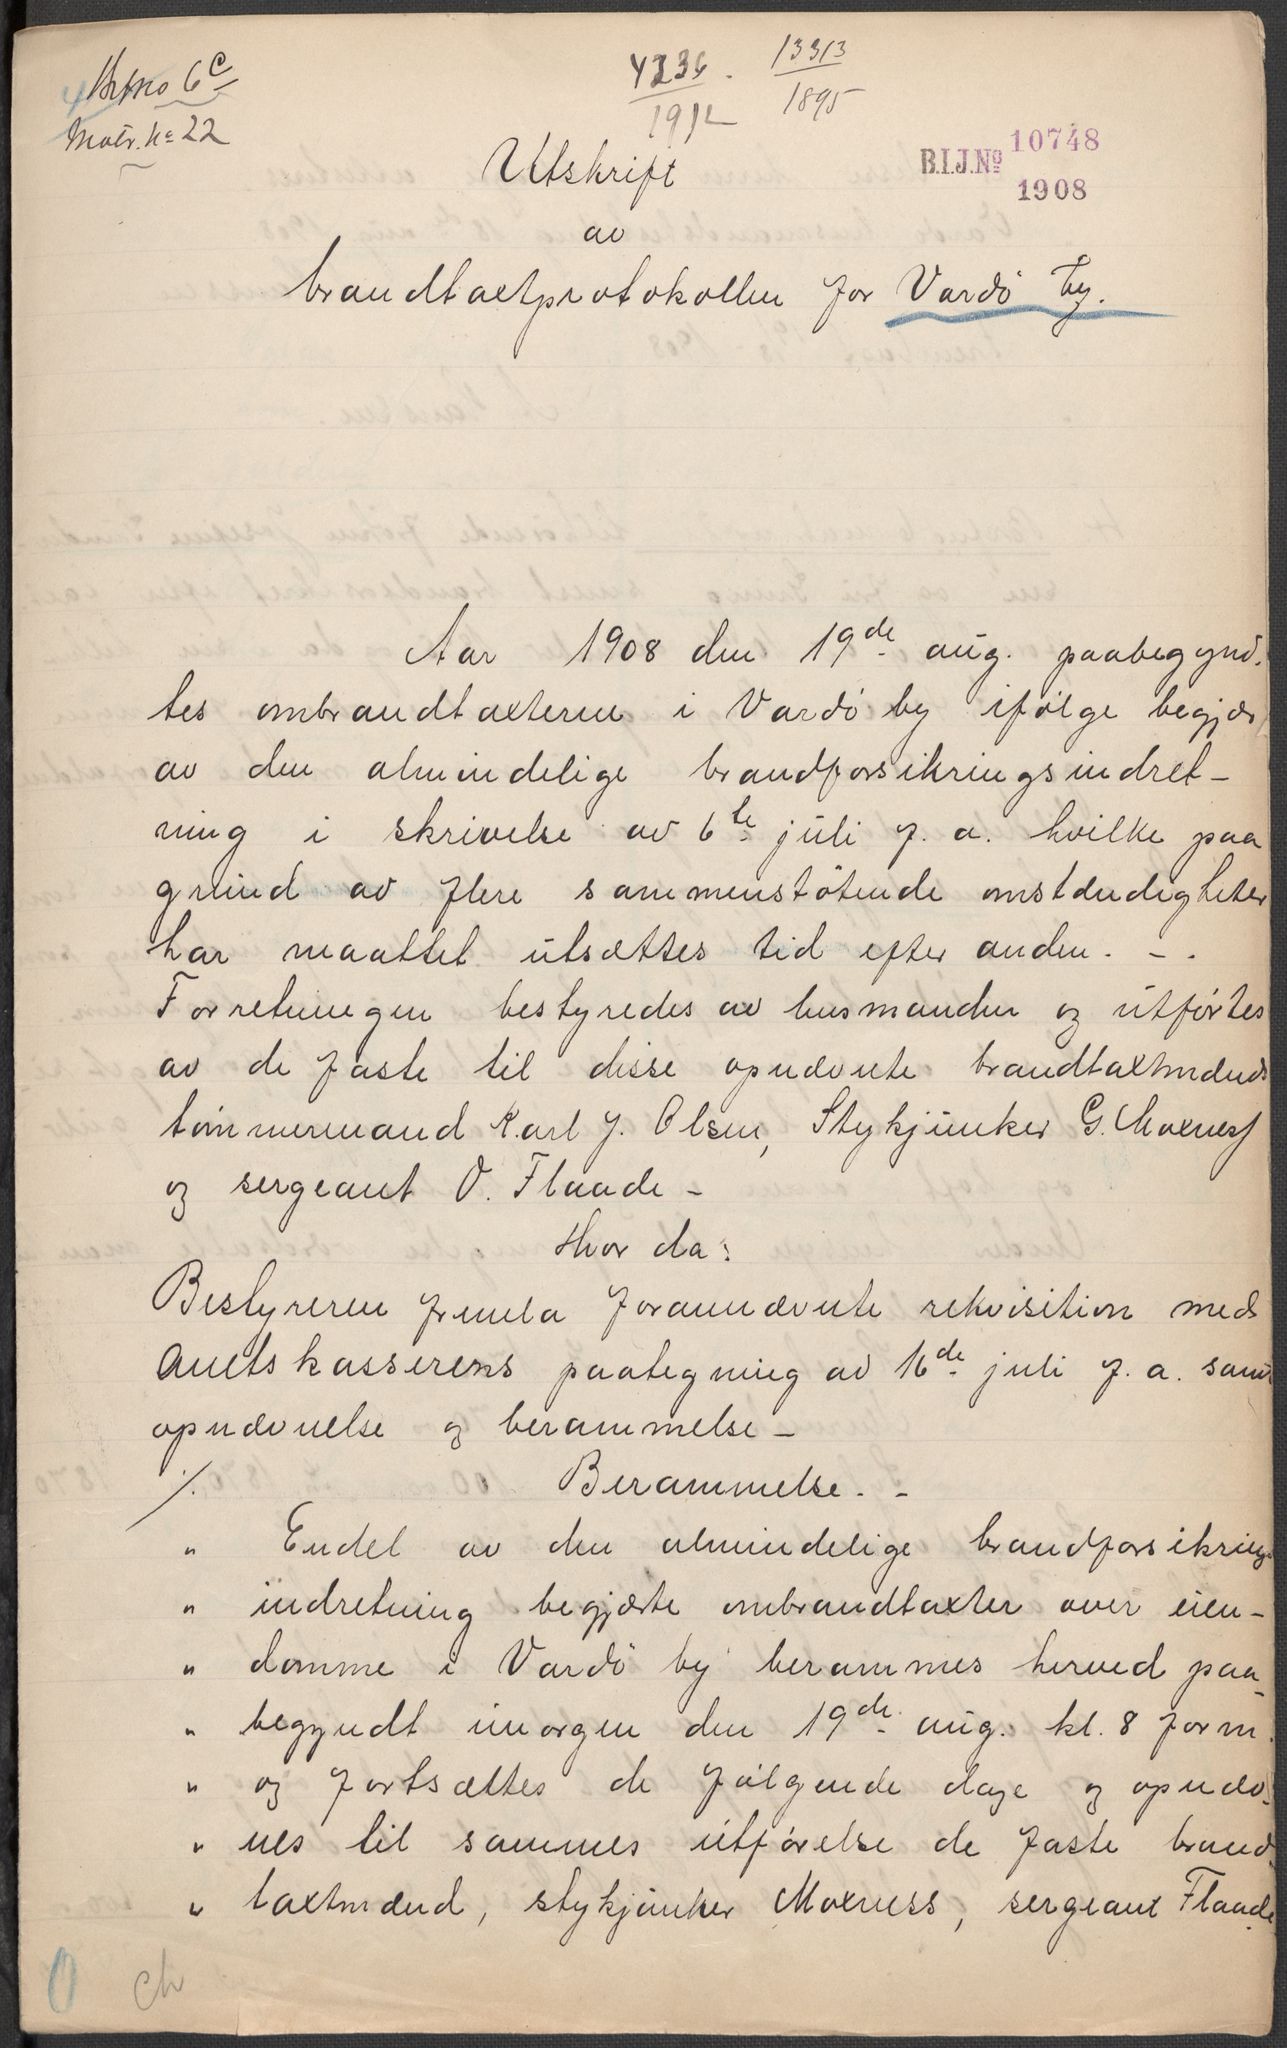 Br.No 6c
Matr. No 22
4236
1912
13313
1895
B.I.J.No 10748
1908
Utskrift
av
brandtaxtprotokollen for Vardö by.
Aar 1908 den 19de aug. paabegynd-
tes ombrandtaxterne i Vardö by ifølge begjær
av den almindelige brandforsikringsindret-
ning i skrivelse av 6te juli f. a. hvilke paa
grund av flere sammenstötende omstændigheter
har maattet utsættes tid efter anden. - .
Forretningen bestyredes av lensmanden og utførtes
av de faste til disse opnævnte brandtaxtmænd
tömmermand Karl J. Olsen, Stykjunker G. Moxness
og sergeant O. Flaade -
Hvor da:
Bestyreren fremla forannævnte rekvisition med
Amtskasserens paategning av 16de juli f. a. samt
opnævnelse og berammelse -
./. Berammelse. -
" Endel av den almindelige brandforsikrings
" indretning begjærte ombrandtaxter over eien-
" domme i Vardö by berammes herved paa-
" begyndt imorgen den 19de aug. kl. 8 form.
" og fortsættes de følgende dage og opnæv-
" nes til sammes utførelse de faste brand
" taxtmænd, stykjunker Moxness, sergeant Flaade
0 ch